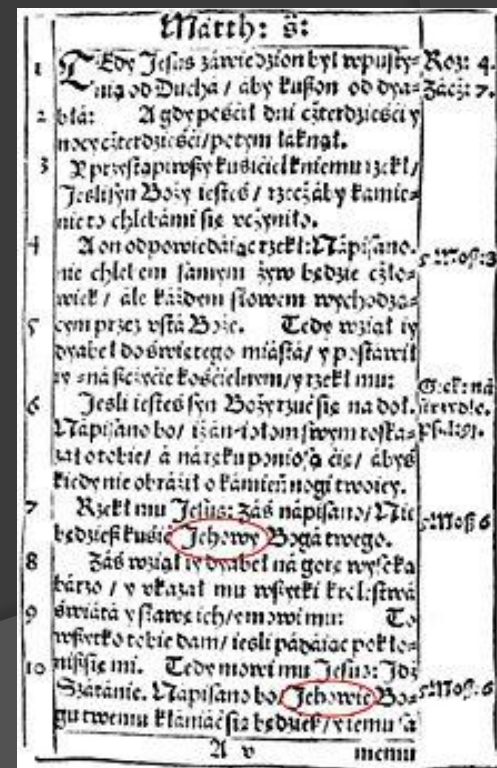 Matth: 8:
1 TEdy Jesus záwiedzion był ná pusty= Roz: 4.
nią od Ducha / aby kußon od dya= Zácż: 7.
2 błá: A gdy pościł dni cżterdzieści y
nocy cżterdzieści/potym łaknął.
3 Y przystąpiwßy kusićiel k niemu rzekł/
Jesli syn Boży iesteś / rzecż áby kamie=
nie to chlebámi się vcżyniło.
4 A on odpowiedáiąc rzekł: Nápisano. 5 Moß: 8
nie chlebem sámym żyw będzie cżło=
wiek / ále káżdem słowem wychodzą=
5 cym przez vstá Boże. Tedy wziął iy
dyabeł do świętego miástá/ y postáwił
iy ná kościelnym/ y rzekł mu:
6 Jesli iesteś syn Boży rzuć się na doł.
Nápisano bo/ iż swym roska=
zał o tobie/ á ná ręku poniosą ćię/ ábyś
kiedy nie obráźił o kámień nogi twoiey.
7 Rzekł mu Jesus: Záś nápisano/ Nie 5 Moß 6
będzieß kusić Jehowy Bogá twego.
8 Záś wziął iy dyabeł ná gorę wysoką
bárzo / y vkazał mu wßytki krolestwá
9 świátá y sławę ich/ y mowi mu: To
wßytko tobie dam/ iesli pádáiąc pokło=
10 nißsię mi. Tedy mowi mu Jesus: Jdź
Szátánie. Nápisano bo/ Jehowie Bo= 5 Moß: 6
gu twemu kłániáć się będzieß/ y iemu sá
A v memu